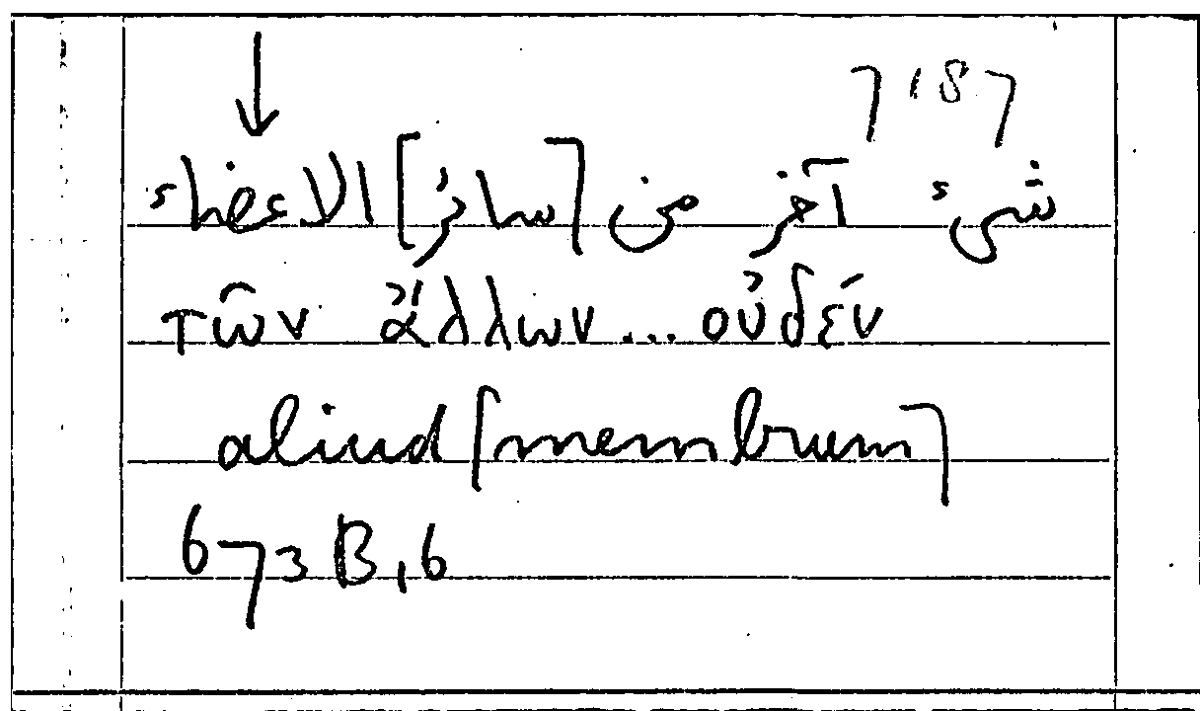 7187
شىء آخر من [سائر] الاعضاء
τῶν ἄλλων... οὐδέν
aliud [membrum]
673 B, 6